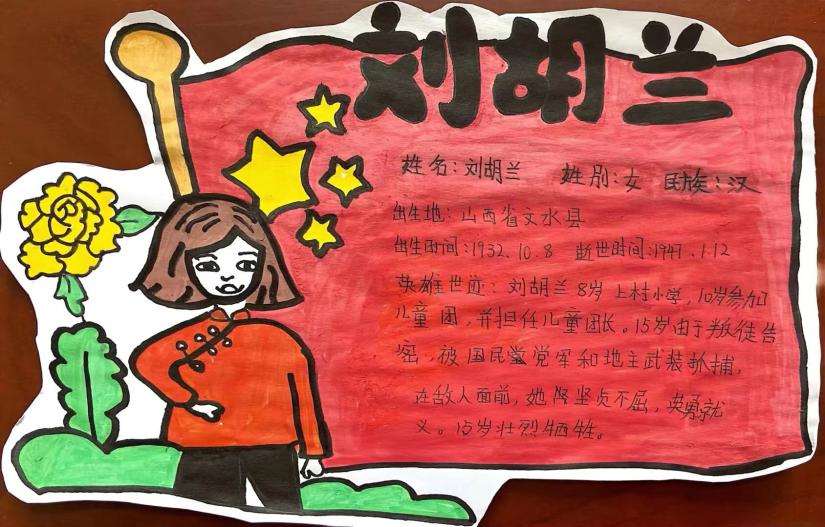 刘胡兰
姓名：刘胡兰 姓别：女 民族：汉
出生地：山西省文水县
出生时间：1932.10.8 逝世时间：1947.1.12
英雄世迹：刘胡兰8岁上村小学，10岁参加
儿童团，并担任儿童团长。15岁由于叛徒告
密，被国民党军和地主武装抓捕，
在敌人面前，她坚贞不屈，英勇就
义。15岁壮烈牺牲。